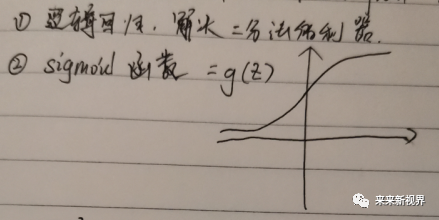 ① 逻辑回归. 解决二分法的利器.
② sigmoid 函数 = g(z)
来来新视界